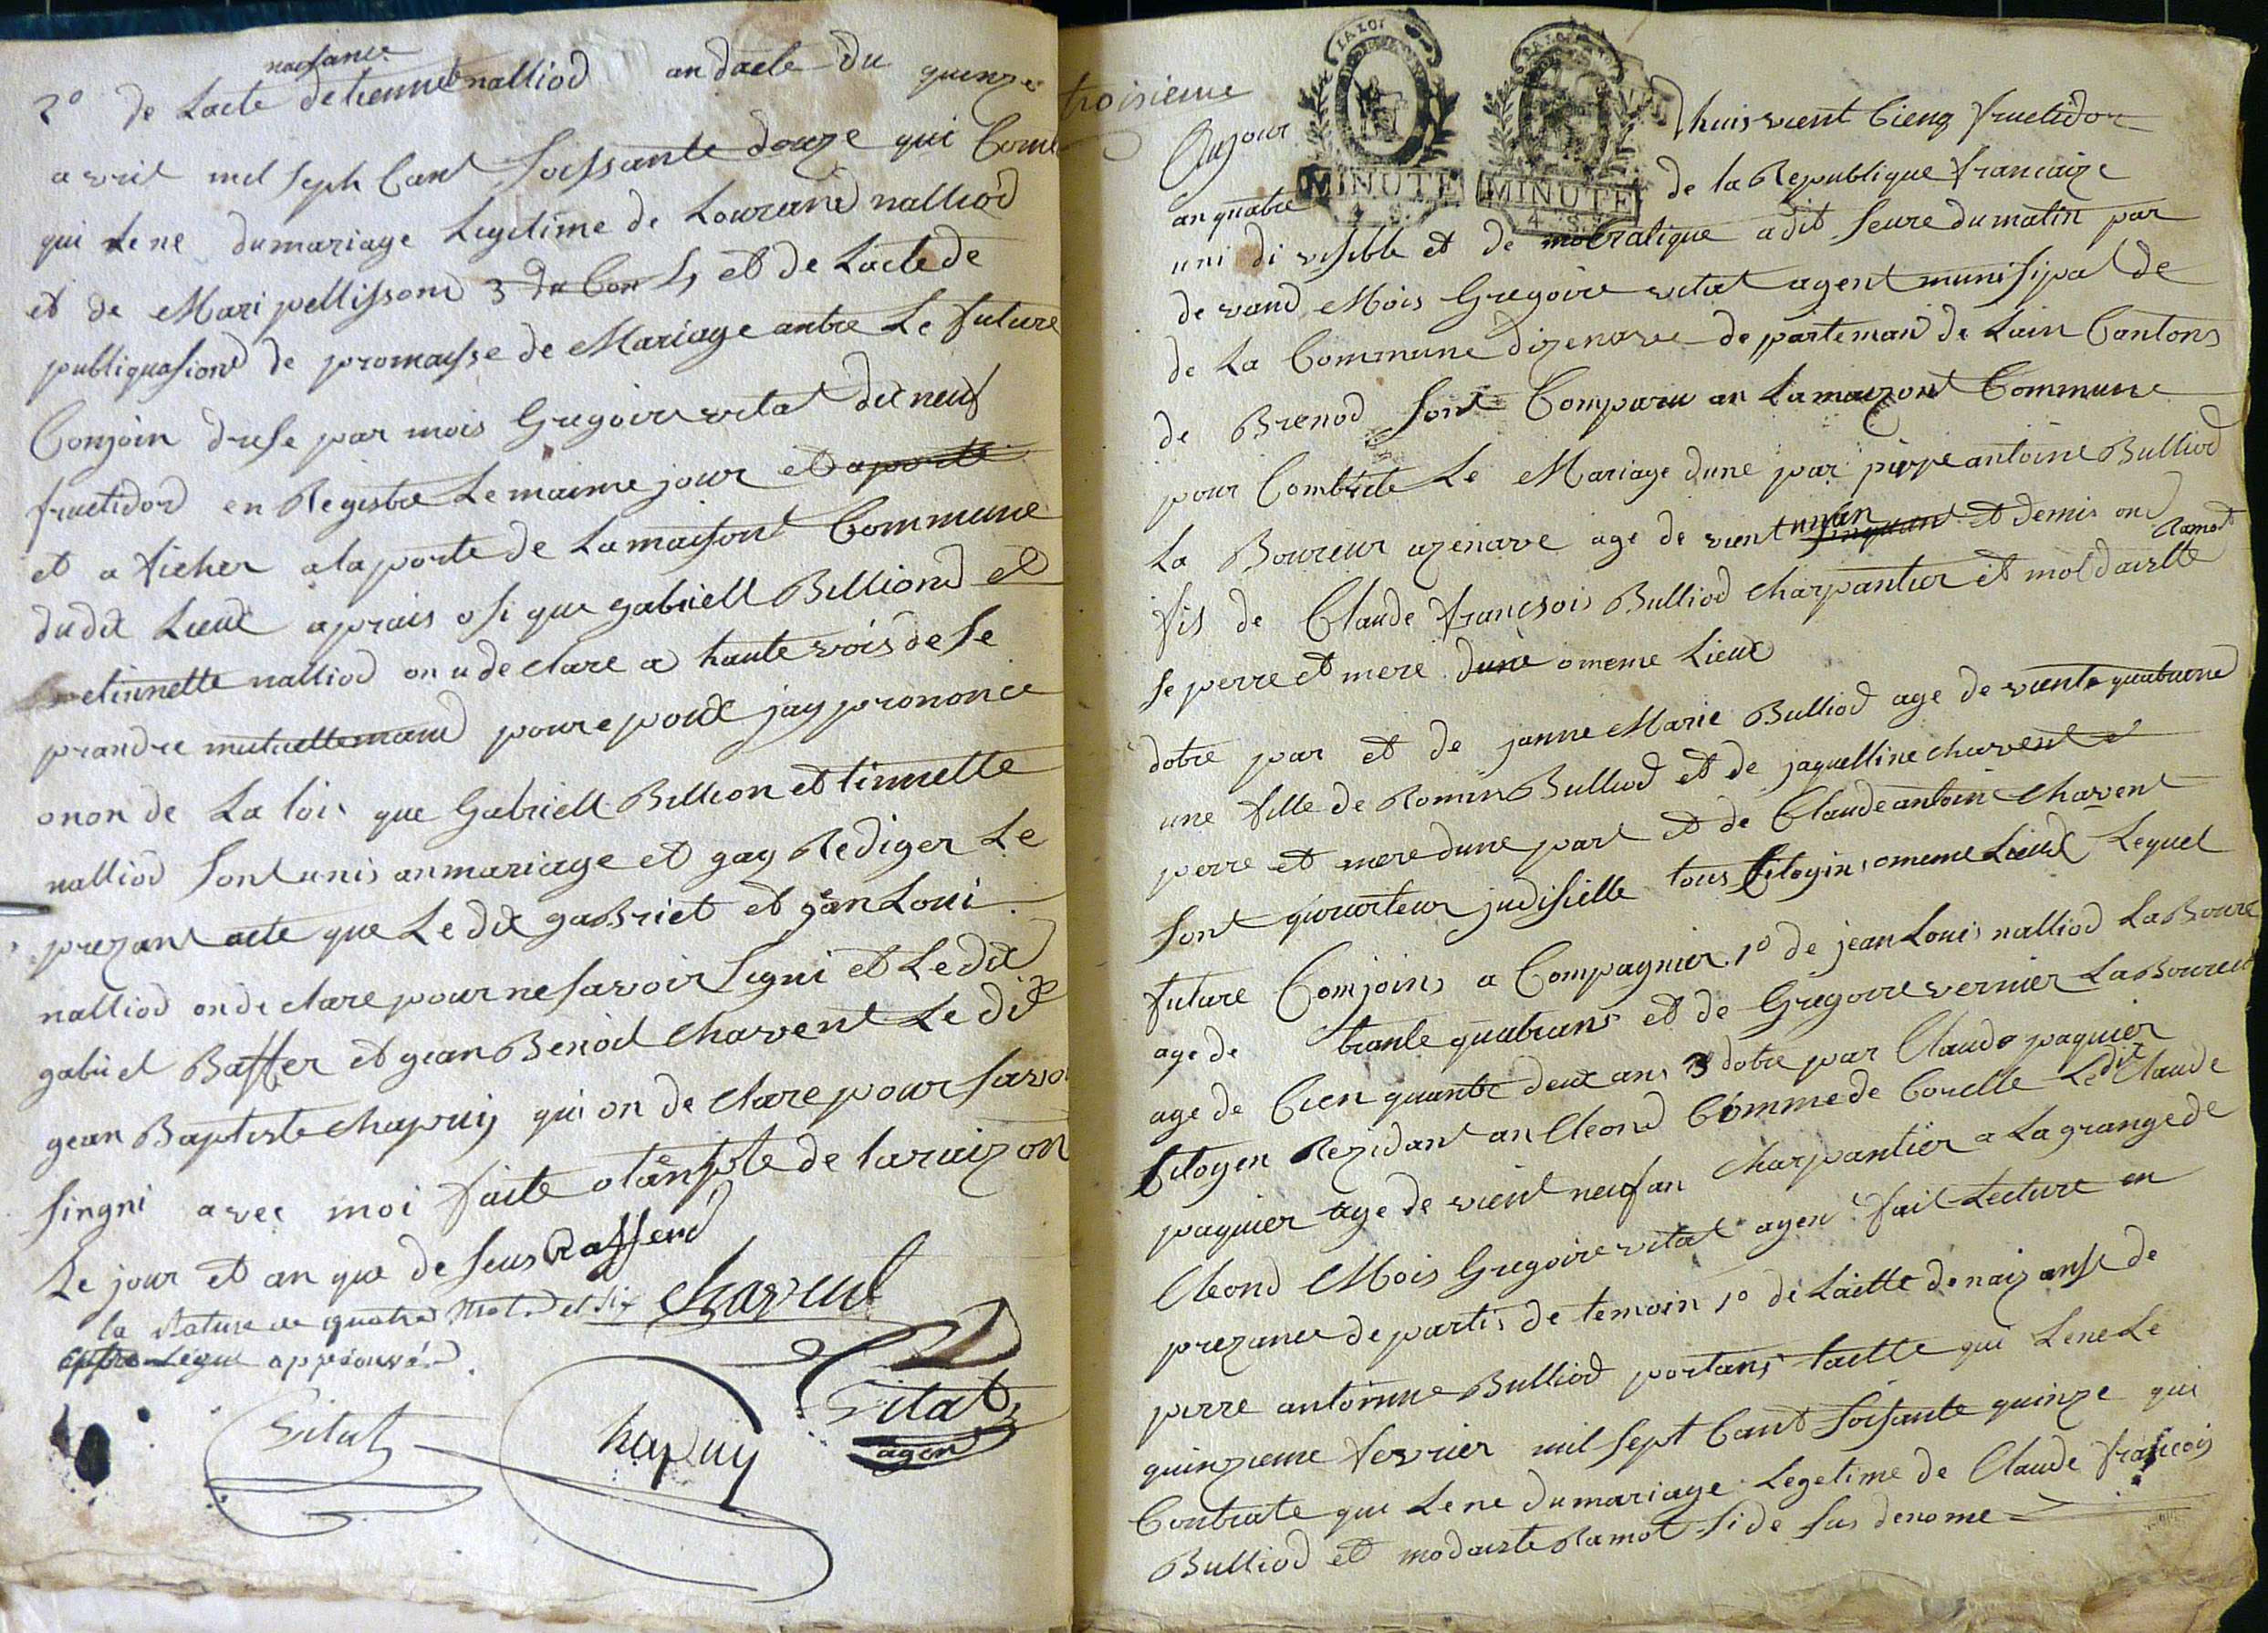 naissance
2° de Lacte detiennete nalliod an dacte du quinze
avril mil seph Cant soissante douze qui Come
qui Le ne dumariage Legetime de Lourand nalliod
et de Mari pellissond 3 du Con 4 et de Lacte de
publiquasiond de promaisse de Mariage antre Le future
Conjoin drese par mois Gregoire vital dit neuf
fructidord en Registre Le maime jour et aporte
et a ficher a la porte de Lamaisont Commune
dudit Lieux aprais osi que gabriell Billiond et
etiennette nalliod on u de clare a haute vois de se
prandre mutuellemand pour epoux jay prononce
onon de La loi que Gabriell Billion et tinnette
nalliod sont unis anmariage et gay Rediger Le
prezant acte que Le dit gabriel et jean Loui
nalliod onde clare pour ne savoir signi et Le dit
gabriel Baffer et gean Benoit Chavent Le dit
gean Baptiste Chapuij qui on de clare pour savoi
singni avec moi faite o tanple de la raizon
Le jour et an que de seus Raffend
la rature de quatre mot et six
approuvée
Chavent
Vital
Chapuy
Vital
agen
troisieme
LA LOI
LA LOI
MINUTE
MINUTE
4 S.
4 S.
Aujour dhuis vient Cienq fructidor
an quatre de la Republique francaize
uni di visible et de mocratique a dit seure du matin par
de vand Mois Gregoire vital agent munisipal de
de La Commune dizenave de parteman de Lain Cantons
de Brenod sont Comparu an Lamaizont Commune
pour Contracte Le Mariage dune par pierre antoine Bulliod
La Boureur azenave age de vient un an et demis on
fis de Claude francsois Bulliod charpantier et moldaiste Ramot
se perre et mere dune o meme Lieux
dotre par et de janne Marie Bulliod age de vient quatrane
une fille de Romin Bulliod et de jaquelline chavent
perre et mere dune part et de Claude antoine chavent
sont qurateur judisielle tous sitogins omeme Lieux Lequel
future Conjoins a Compagnier 1° de jean Loui nalliod La Boure
age de trante quatrans et de Gregoire vernier La Boureur
age de Cien quante deux ans 3 dotre par Claude paquier
Citogen Rezidant an Cleond Comme de Corelle Le dit Claude
paquier age de vient neuf an charpantier a La grange de
Cleond Mois Gregoire vital agen fait Lecture en
prezance de partis de temoin 1° de Laitte de naizanse de
pirre antoinne Bulliod portans laitte qui Le ne Le
quinzieme fevrier mil sept Cant soisante quinze qui
Contrate que Le ne dumariage Legetime de Claude francois
Bulliod et modaiste Ramot si de sus denome